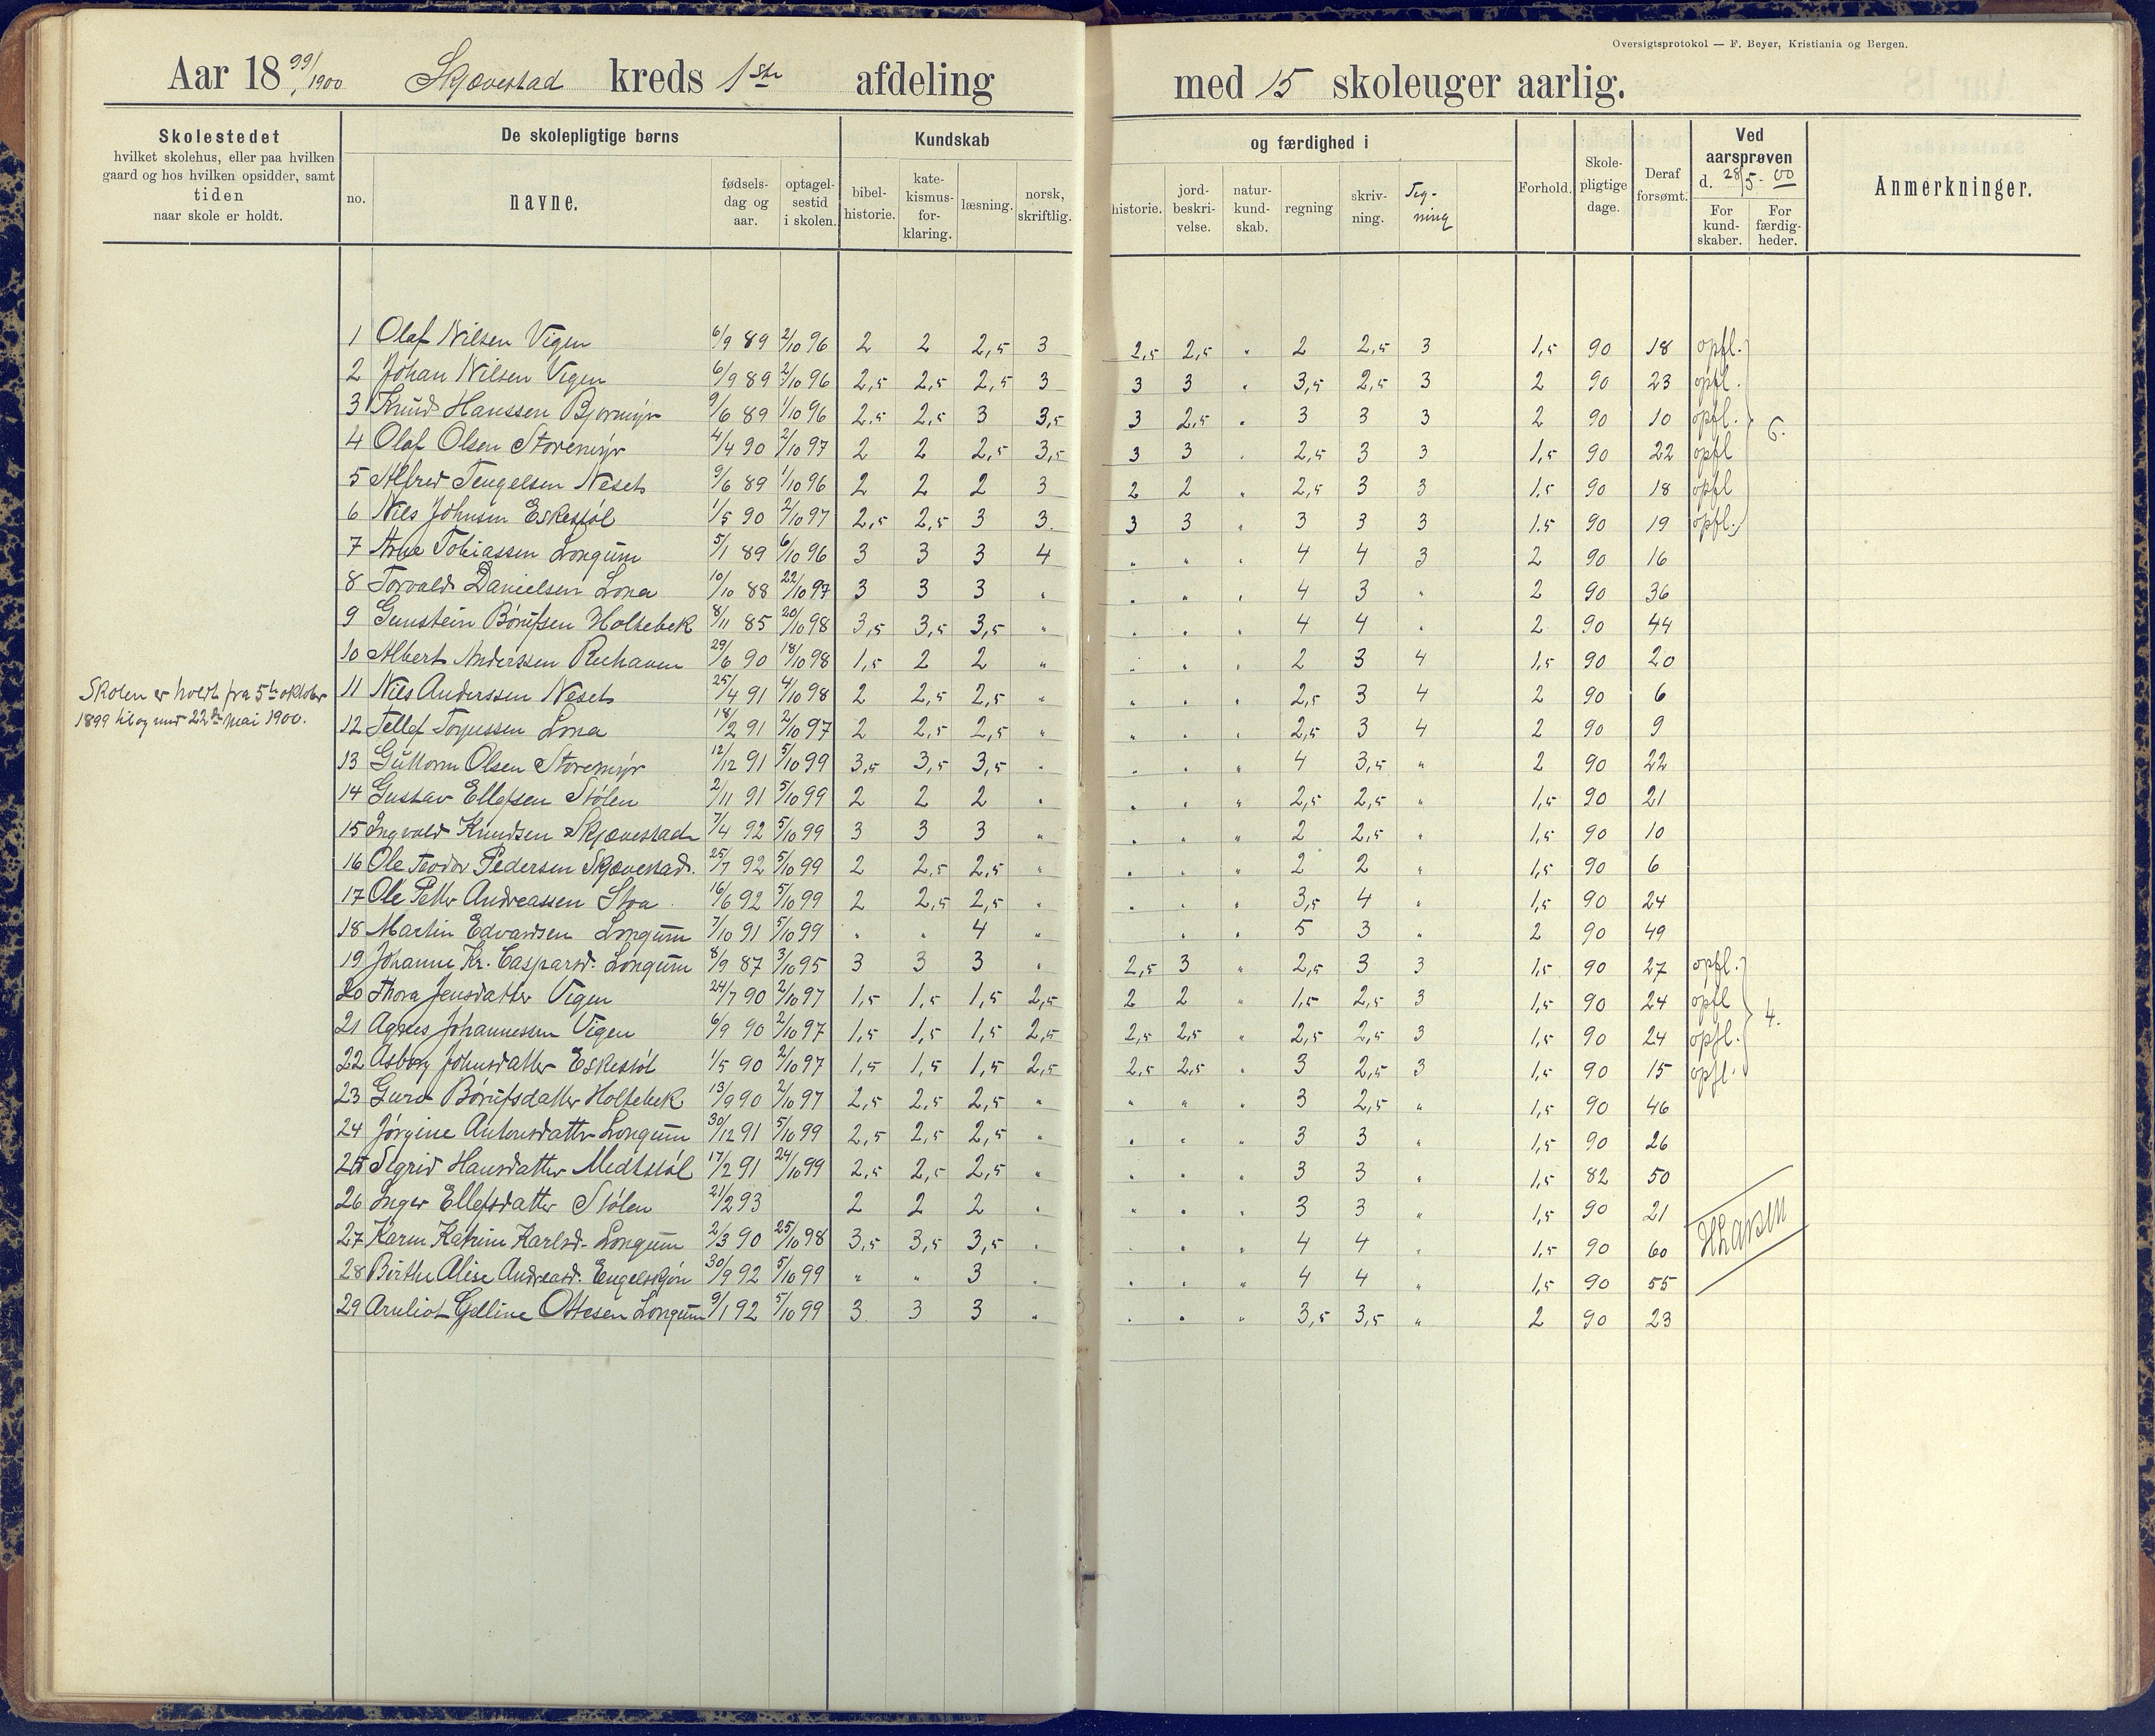 Oversigtsprotokol — F. Beyer, Kristiania og Bergen.
Aar 18 99/1900 Skjævestad kreds 1ste afdeling med 15 skoleuger aarlig.
Skolestedet hvilket skolehus, eller paa hvilken gaard og hos hvilken opsidder, samt tiden naar skole er holdt.
De skolepligtige børns
no. navne. fødselsdag og aar. optagelsestid i skolen.
Kundskab og færdighed i
bibelhistorie. katekismusforklaring. læsning. norsk, skriftlig. historie. jordbeskrivelse. naturkundskab. regning skrivning. Tegning
Forhold. Skolepligtige dage. Deraf forsømt.
Ved aarsprøven d. 28/5 - 00
For kundskaber. For færdigheder.
Anmerkninger.
1 Olaf Nilsen Vigen 6/9 89 2/10 96 2 2 2,5 3 2,5 2,5 " 2 2,5 3 1,5 90 18 opfl.
2 Johan Nilsen Vigen 6/9 89 2/10 96 2,5 2,5 2,5 3 3 3 " 3,5 2,5 3 2 90 23 opfl.
3 Knud Hanssen Bjormyr 9/6 89 1/10 96 2,5 2,5 3 3,5 3 2,5 " 3 3 3 2 90 10 opfl. 6.
4 Olaf Olsen Storemyr 4/4 90 2/10 97 2 2 2,5 3,5 3 3 " 2,5 3 3 1,5 90 22 opfl
5 Alfred Tengelsen Neset 9/6 89 1/10 96 2 2 2 3 2 2 " 2,5 3 3 1,5 90 18 opfl
6 Nils Johnsen Eskestøl 1/5 90 2/10 97 2,5 2,5 3 3. 3 3 " 3 3 3 1.5 90 19 opfl.
7 Arne Tobiassen Longum 5/1 89 6/10 96 3 3 3 4 " " " 4 4 3 2 90 16
8 Torvald Danielsen Lona 10/10 88 22/10 97 3 3 3 " " " " 4 3 " 2 90 36
9 Gunstein Børufsen Holtebek 8/11 85 20/10 98 3,5 3,5 3,5 " " " " 4 4 " 2 90 44
10 Albert Anderssen 29/6 90 18/10 98 1,5 2 2 " " " " 2 3 4 1,5 90 20
Skolen er holdt fra 5te oktober
1899 til og med 22de mai 1900.
11 Nils Anderssen Neset 25/4 91 4/10 98 2 2,5 2,5 " " " " 2,5 3 4 2 90 6
12 Tellef Torjussen Lona 18/2 91 2/10 97 2 2,5 2,5 " " " " 2,5 3 4 2 90 9
13 Guttorm Olsen Storemyr 12/12 91 5/10 99 3,5 3,5 3,5 " " " " 4 3,5 " 2 90 22
14 Gustav Ellefsen Stølen 2/11 91 5/10 99 2 2 2 " " " " 2,5 2,5 " 1,5 90 21
15 Ingvald Knudsen Skjævestad 7/4 92 5/10 99 3 3 3 " " " " 2 2,5 " 1,5 90 10
16 Ole Teodor Pedersen Skjævestad. 25/7 92 5/10 99 2 2,5 2,5 " " " " 2 2 " 1,5 90 6
17 Ole Petter Andreassen Stoa 16/6 92 5/10 99 2 2,5 2,5 " " " " 3,5 4 " 1,5 90 24
18 Martin Edvardsen Longum 7/10 91 5/10 99 " " 4 " " " 5 3 " 2 90 49
19 Johanne Kr. Caspersd. Longum 8/9 87 3/10 95 3 3 3 " 2,5 3 " 2,5 3 3 1,5 90 27 opfl.
20 Thora Jensdatter Vigen 24/7 90 2/10 97 1,5 1,5 1,5 2,5 2 2 " 1,5 2,5 3 1,5 90 24 opfl 4.
21 Agnes Johannessen Vigen 6/9 90 2/10 97 1,5 1,5 1,5 2,5 2,5 2,5 " 2,5 2,5 3 1,5 90 24 opfl.
22 Asborg Johnsdatter Eskestøl 1/5 90 2/10 97 1,5 1,5 1,5 2,5 2,5 2,5 " 3 2,5 3 1,5 90 15 opfl.
23 Guro Børufsdatter Holtebek 13/9 90 2/10 97 2,5 2,5 2,5 " " " " 3 2,5 " 1,5 90 46
24 Jørgine Antonsdatter Longum 30/12 91 5/10 99 2,5 2,5 2,5 " " " " 3 3 " 1,5 90 26
25 Sigrid Hansdatter Medtstøl 17/2 91 24/10 99 2,5 2,5 2,5 " " " " 3 3 " 1,5 82 50
26 Inger Ellefsdatter Stølen 21/2 93 2 2 2 " " " " 3 3 " 1,5 90 21
27 Karen Katrine Karlsd. Longum 2/3 90 25/10 98 3,5 3,5 3,5 " " " " 4 4 " 1,5 90 60
28 Birthe Alise Andreasd. Engelskjøn 30/9 92 5/10 99 " " 3 " " " " 4 4 " 1,5 90 55
29 Gelline Ottesen Longum 9/1 92 5/10 99 3 3 3 " " " " 3,5 3,5 " 2 90 23